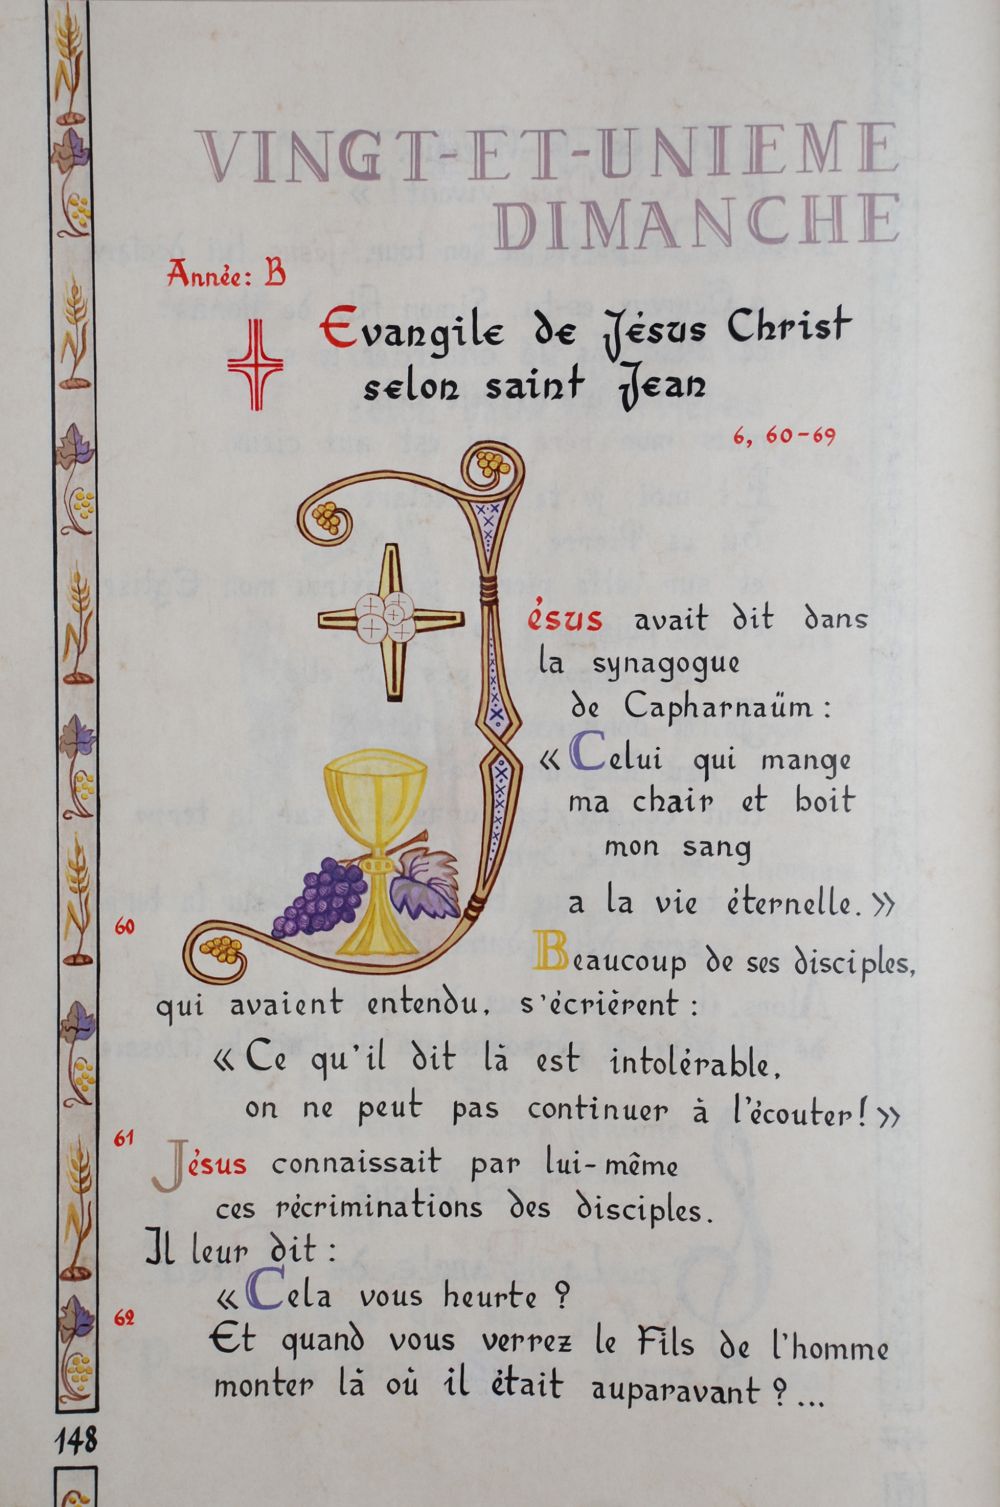 VINGT-ET-UNIEME
DIMANCHE
Année: B
Evangile de Jésus Christ
selon saint Jean
6, 60-69
Jésus avait dit dans
la synagogue
de Capharnaüm :
« Celui qui mange
ma chair et boit
mon sang
a la vie éternelle. »
60
Beaucoup de ses disciples,
qui avaient entendu, s'écrièrent :
« Ce qu'il dit là est intolérable,
on ne peut pas continuer à l'écouter! »
61
Jésus connaissait par lui-même
ces récriminations des disciples.
Il leur dit :
« Cela vous heurte ?
62
Et quand vous verrez le Fils de l'homme
monter là où il était auparavant ?...
148